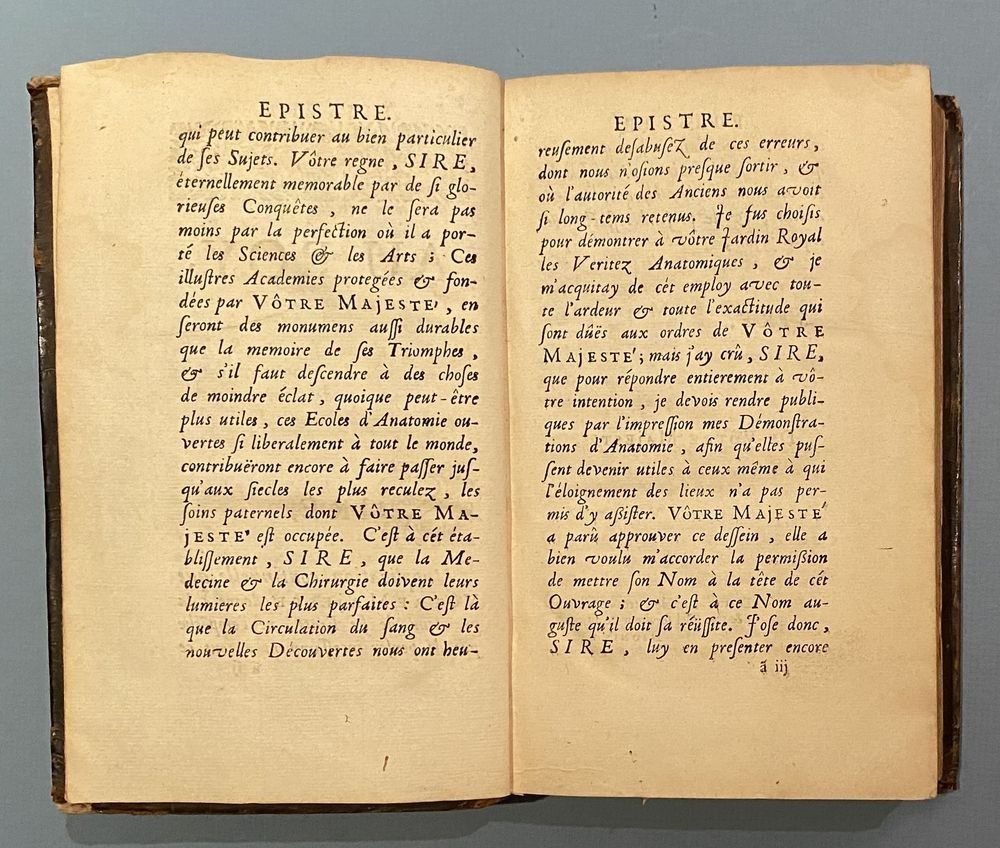 EPISTRE.
qui peut contribuer au bien particulier
de ſes Sujets. Vôtre regne, SIRE,
éternellement memorable par de ſi glo-
rieuſes Conquêtes, ne le ſera pas
moins par la perfection où il a por-
té les Sciences & les Arts; Ces
illuſtres Academies protegées & fon-
dées par VÔTRE MAJESTE', en
ſeront des monumens auſſi durables
que la memoire de ſes Triomphes,
& s'il faut deſcendre à des choſes
de moindre éclat, quoique peut-être
plus utiles, ces Ecoles d'Anatomie ou-
vertes ſi liberalement à tout le monde,
contribuëront encore à faire paſſer juſ-
qu'aux ſiecles les plus reculez, les
ſoins paternels dont VÔTRE MA-
JESTE' eſt occupée. C'eſt à cét éta-
bliſſement, SIRE, que la Me-
decine & la Chirurgie doivent leurs
lumieres les plus parfaites: C'eſt là
que la Circulation du ſang & les
nouvelles Découvertes nous ont heu-
EPISTRE.
reuſement deſabuſez de ces erreurs,
dont nous n'oſions preſque ſortir, &
où l'autorité des Anciens nous avoit
ſi long-tems retenus. Je fus choiſis
pour démontrer à vôtre Jardin Royal
les Veritez Anatomiques, & je
m'acquitay de cét employ avec tou-
te l'ardeur & toute l'exactitude qui
ſont dûës aux ordres de VÔTRE
MAJESTE'; mais j'ay crû, SIRE,
que pour répondre entierement à vô-
tre intention, je devois rendre publi-
ques par l'impreſſion mes Démonſtra-
tions d'Anatomie, afin qu'elles puſ-
ſent devenir utiles à ceux même à qui
l'éloignement des lieux n'a pas per-
mis d'y aßiſter. VÔTRE MAJESTE'
a parû approuver ce deſſein, elle a
bien voulu m'accorder la permißion
de mettre ſon Nom à la tête de cét
Ouvrage; & c'eſt à ce Nom au-
guſte qu'il doit ſa réüſſite. J'oſe donc,
SIRE, luy en preſenter encore
ã iij